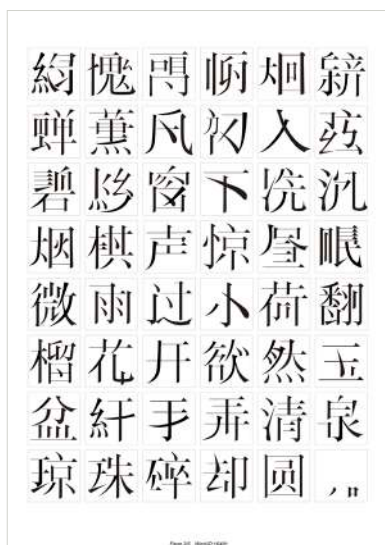 绿槐高柳咽新
蝉薰风初入弦
碧纱窗下洗沉
烟棋声惊昼眠
微雨过小荷翻
榴花开欲然玉
盆纤手弄清泉
琼珠碎却圆